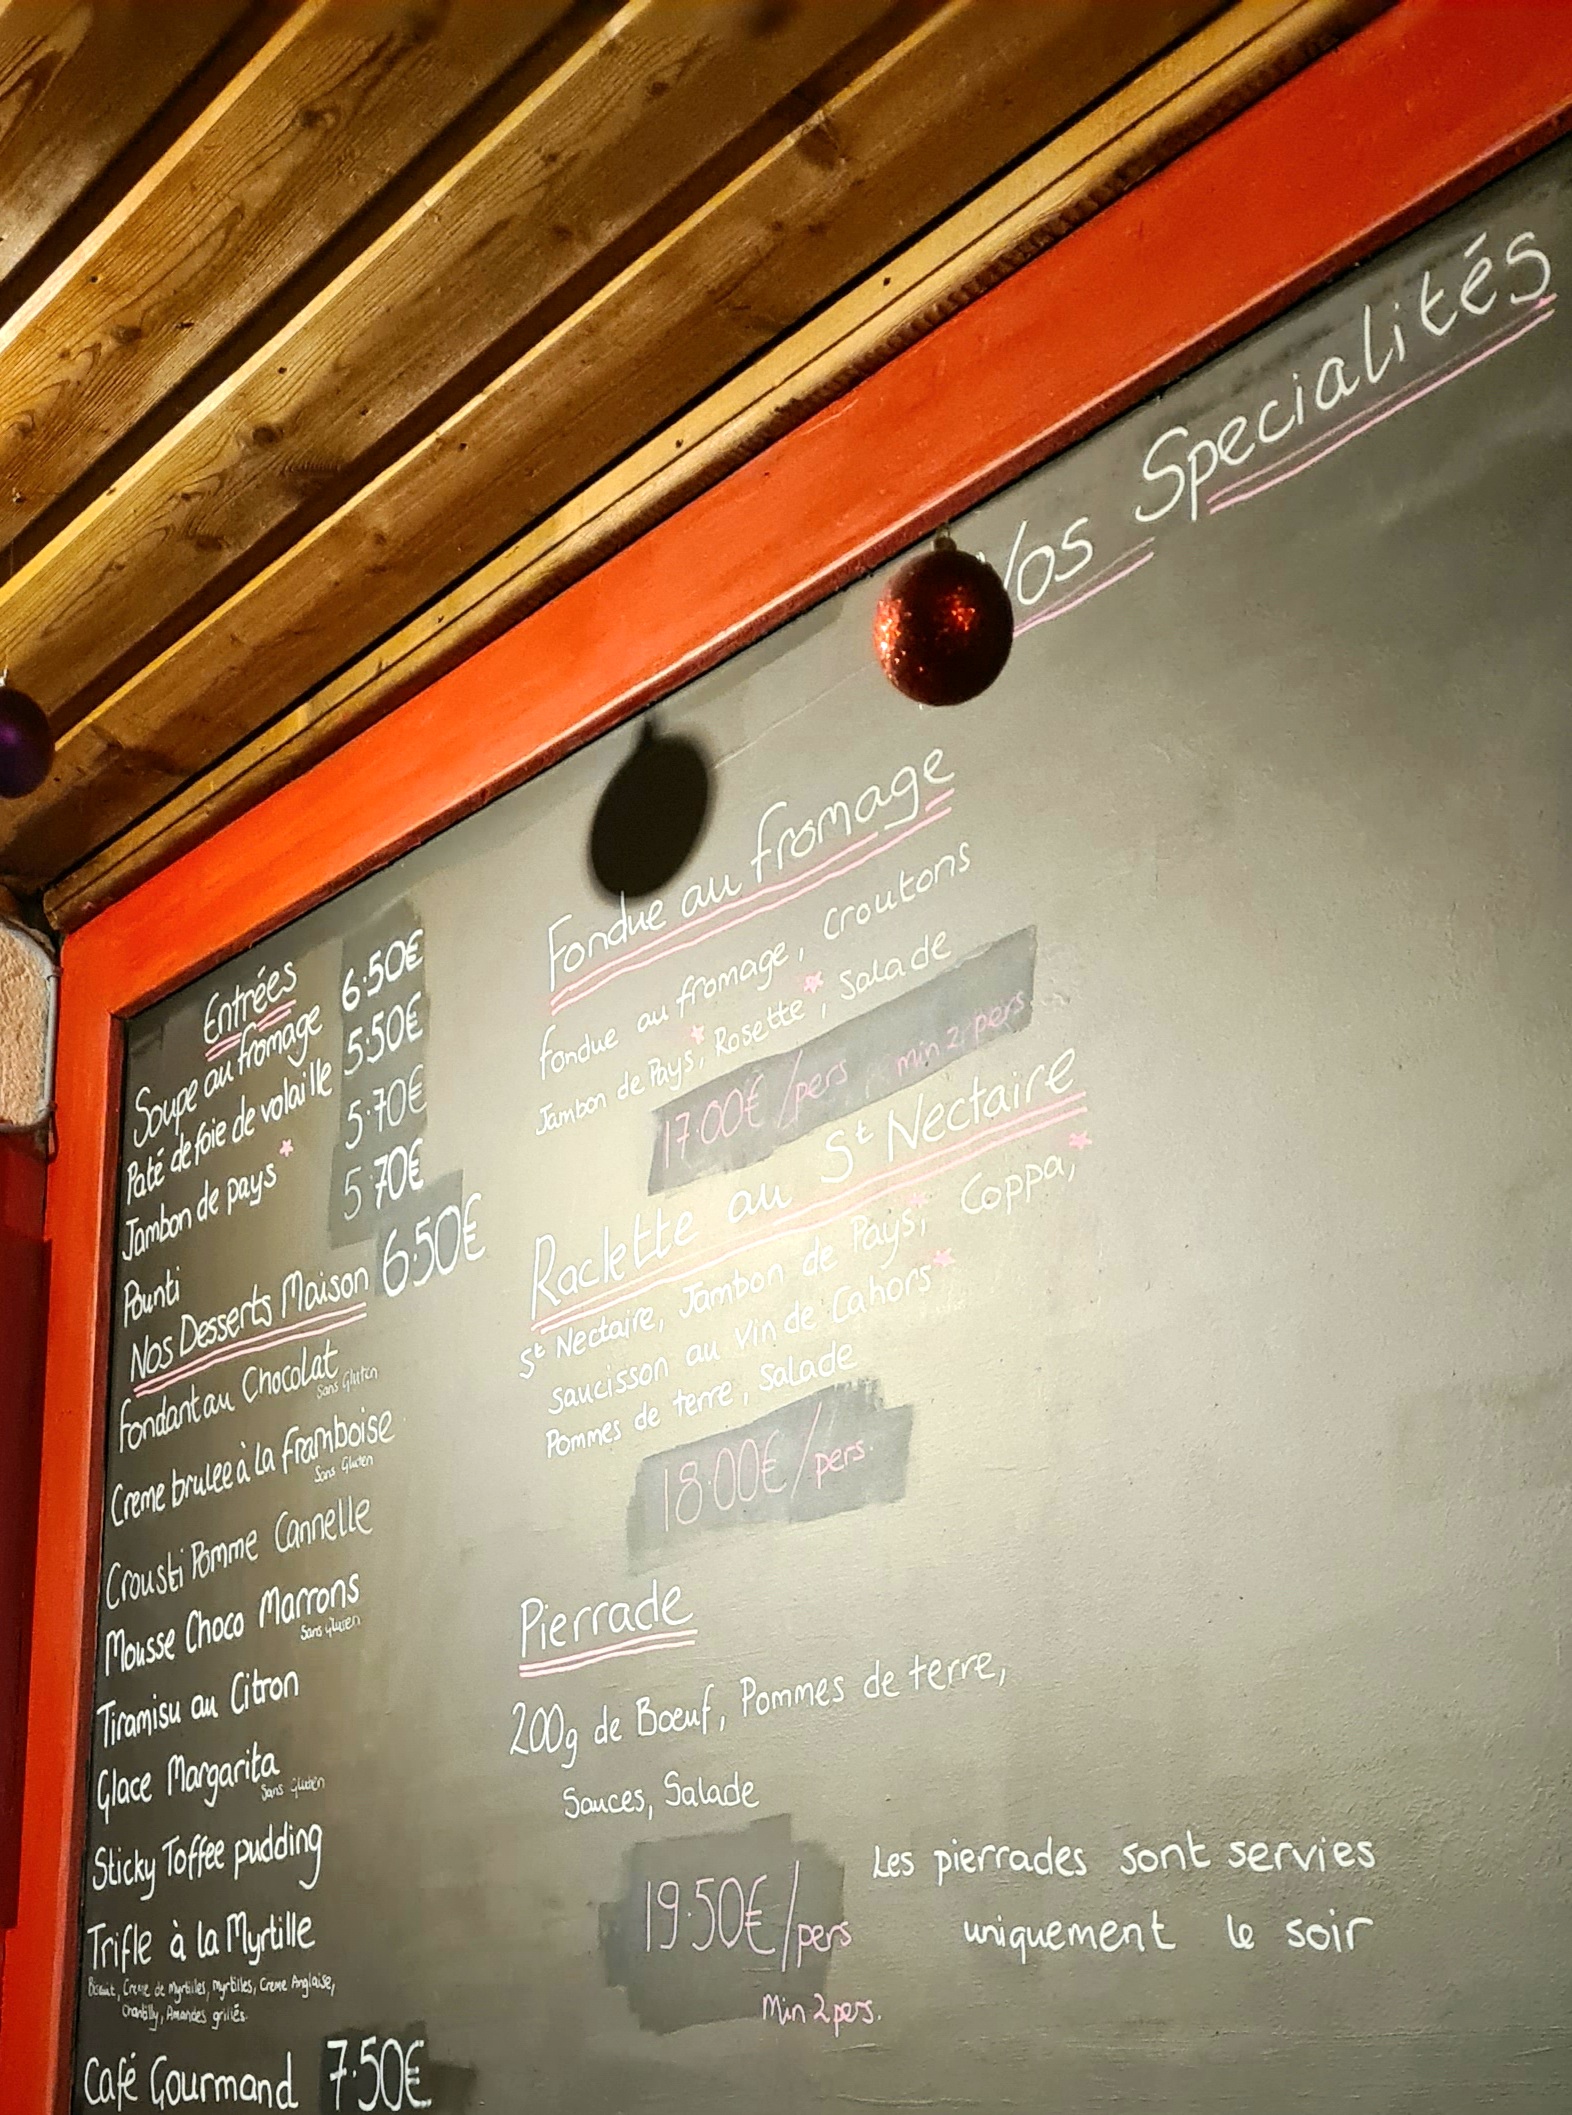 Nos Specialités
Entrées
Soupe au fromage 6.50€
Paté de foie de volaille 5.50€
Jambon de pays* 5.70€
Pounti 5.70€
Nos Desserts Maison 6.50€
Fondant au Chocolat
Sans Gluten
Creme brulee à la framboise
Sans Gluten
Crousti Pomme Cannelle
Mousse Choco Marrons
Sans gluten
Tiramisu au Citron
Glace Margarita
Sans Gluten
Sticky Toffee pudding
Trifle à la Myrtille
Biscuit, Creme de Myrtilles, Myrtilles, Creme Anglaise,
Chantilly, Amandes grillés.
Café Gourmand 7.50€
Fondue au fromage
Fondue au fromage, Croutons
Jambon de Pays*, Rosette*, Salade
17.00€/pers min 2 pers
Raclette au St Nectaire
St Nectaire, Jambon de Pays*, Coppa,*
Saucisson au Vin de Cahors*
Pommes de terre, Salade
18.00€/pers.
Pierrade
200g de Bœuf, Pommes de terre,
Sauces, Salade
19.50€/pers
Min 2 pers.
Les pierrades sont servies
uniquement le soir